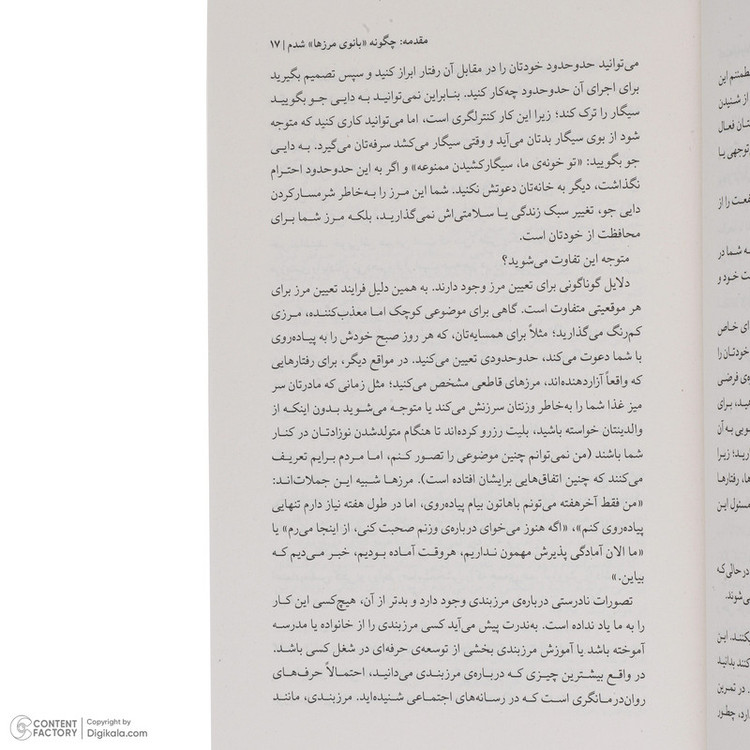 مقدمه: چگونه «بانوی مرزها» شدم | ۱۷
می‌توانید حدوحدود خودتان را در مقابل آن رفتار ابراز کنید و سپس تصمیم بگیرید
برای اجرای آن حدوحدود چه‌کار کنید. بنابراین نمی‌توانید به دایی جو بگویید
سیگار را ترک کند؛ زیرا این کار کنترلگری است، اما می‌توانید کاری کنید که متوجه
شود از بوی سیگار بدتان می‌آید و وقتی سیگار می‌کشد سرفه‌تان می‌گیرد. به دایی
جو بگویید: «تو خونه‌ی ما، سیگارکشیدن ممنوعه» و اگر به این حدوحدود احترام
نگذاشت، دیگر به خانه‌تان دعوتش نکنید. شما این مرز را به‌خاطر شرمسارکردن
دایی جو، تغییر سبک زندگی یا سلامتی‌اش نمی‌گذارید، بلکه مرز شما برای
محافظت از خودتان است.
متوجه این تفاوت می‌شوید؟
دلایل گوناگونی برای تعیین مرز وجود دارند. به همین دلیل فرایند تعیین مرز برای
هر موقعیتی متفاوت است. گاهی برای موضوعی کوچک اما معذب‌کننده، مرزی
کم‌رنگ می‌گذارید؛ مثلاً برای همسایه‌تان، که هر روز صبح خودش را به پیاده‌روی
با شما دعوت می‌کند، حدوحدودی تعیین می‌کنید. در مواقع دیگر، برای رفتارهایی
که واقعاً آزاردهنده‌اند، مرزهای قاطعی مشخص می‌کنید؛ مثل زمانی که مادرتان سر
میز غذا شما را به‌خاطر وزنتان سرزنش می‌کند یا متوجه می‌شوید بدون اینکه از
والدینتان خواسته باشید، بلیت رزرو کرده‌اند تا هنگام متولدشدن نوزادتان در کنار
شما باشند (من نمی‌توانم چنین موضوعی را تصور کنم، اما مردم برایم تعریف
می‌کنند که چنین اتفاق‌هایی برایشان افتاده است). مرزها شبیه این جملات‌اند:
«من فقط آخرهفته می‌تونم باهاتون بیام پیاده‌روی، اما در طول هفته نیاز دارم تنهایی
پیاده‌روی کنم»، «اگه هنوز می‌خوای درباره‌ی وزنم صحبت کنی، از اینجا می‌رم» یا
«ما الان آمادگی پذیرش مهمون نداریم، هروقت آماده بودیم، خبر می‌دیم که
بیاین.»
تصورات نادرستی درباره‌ی مرزبندی وجود دارد و بدتر از آن، هیچ‌کسی این کار
را به ما یاد نداده است. به‌ندرت پیش می‌آید کسی مرزبندی را از خانواده یا مدرسه
آموخته باشد یا آموزش مرزبندی بخشی از توسعه‌ی حرفه‌ای در شغل کسی باشد.
در واقع بیشترین چیزی که درباره‌ی مرزبندی می‌دانید، احتمالاً حرف‌های
روان‌درمانگری است که در رسانه‌های اجتماعی شنیده‌اید. مرزبندی، مانند
CONTENT FACTORY | Copyright by Digikala.com